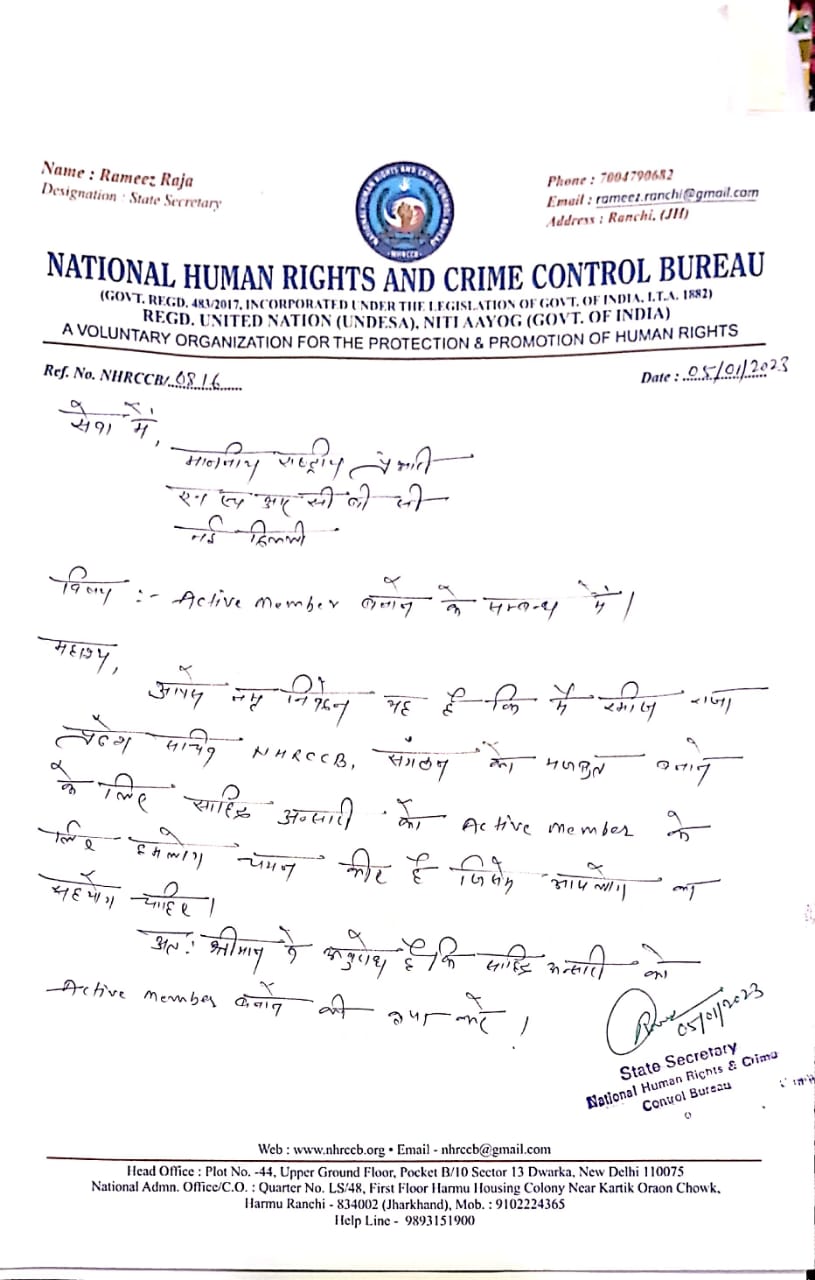 Name : Rameez Raja
Designation : State Secretary
Phone : 7004790682
Email : rameez.ranchi@gmail.com
Address : Ranchi, (JH)
NATIONAL HUMAN RIGHTS AND CRIME CONTROL BUREAU
NHRCCB
NATIONAL HUMAN RIGHTS AND CRIME CONTROL BUREAU
(GOVT. REGD. 483/2017, INCORPORATED UNDER THE LEGISLATION OF GOVT. OF INDIA, I.T.A. 1882)
REGD. UNITED NATION (UNDESA), NITI AAYOG (GOVT. OF INDIA)
A VOLUNTARY ORGANIZATION FOR THE PROTECTION & PROMOTION OF HUMAN RIGHTS
Ref. No. NHRCCB/..0816......
Date : ..05/01/2023
सेवा में,
माननीय राष्ट्रीय प्रभारी
एन एच आर सी सी बी
नई दिल्ली
विषय :- Active member बनाने के सम्बन्ध में।
महाशय,
आपसे नम्र निवेदन यह है कि मैं रमीज राजा
प्रदेश सचिव NHRCCB, संगठन को मजबुत बनाने
के लिए साहिद अन्सारी को Active member के
लिए हमलोग चयन किए है जिसमे आपलोग का
सहयोग चाहिए।
अतः श्रीमान से अनुरोध है कि साहिद अन्सारी को
Active member बनाने की कृपा करे।
05/01/2023
State Secretary
National Human Rights & Crime
Control Bureau
Web : www.nhrccb.org • Email - nhrccb@gmail.com
Head Office : Plot No. -44, Upper Ground Floor, Pocket B/10 Sector 13 Dwarka, New Delhi 110075
National Admn. Office/C.O. : Quarter No. LS/48, First Floor Harmu Housing Colony Near Kartik Oraon Chowk,
Harmu Ranchi - 834002 (Jharkhand), Mob. : 9102224365
Help Line - 9893151900